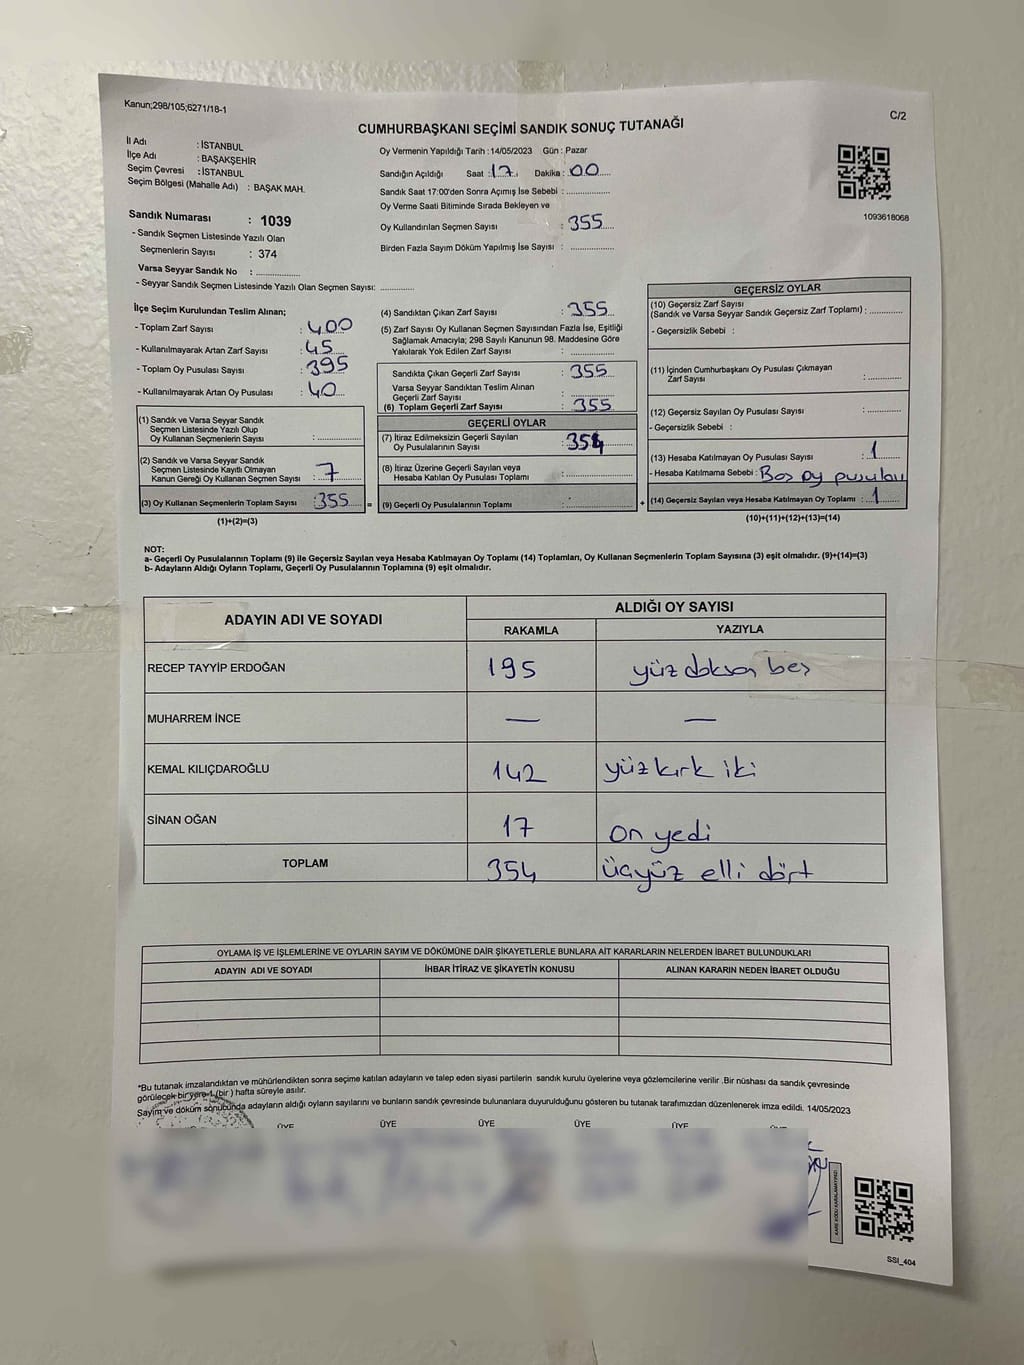 Kanun;298/105;6271/18-1
C/2
CUMHURBAŞKANI SEÇİMİ SANDIK SONUÇ TUTANAĞI
İl Adı : İSTANBUL
İlçe Adı : BAŞAKŞEHİR
Seçim Çevresi : İSTANBUL
Seçim Bölgesi (Mahalle Adı) : BAŞAK MAH.
Sandık Numarası : 1039
- Sandık Seçmen Listesinde Yazılı Olan
Seçmenlerin Sayısı : 374
Varsa Seyyar Sandık No : ..............
- Seyyar Sandık Seçmen Listesinde Yazılı Olan Seçmen Sayısı: ............
Oy Vermenin Yapıldığı Tarih : 14/05/2023 Gün : Pazar
Sandığın Açıldığı Saat : 17 Dakika : 00
Sandık Saat 17:00'den Sonra Açımış İse Sebebi : ..............
Oy Verme Saati Bitiminde Sırada Bekleyen ve
Oy Kullandırılan Seçmen Sayısı : 355
Birden Fazla Sayım Döküm Yapılmış İse Sayısı : ..............
1093618068
İlçe Seçim Kurulundan Teslim Alınan;
- Toplam Zarf Sayısı : 400
- Kullanılmayarak Artan Zarf Sayısı : 45
- Toplam Oy Pusulası Sayısı : 395
- Kullanılmayarak Artan Oy Pusulası : 40
(1) Sandık ve Varsa Seyyar Sandık
Seçmen Listesinde Yazılı Olup
Oy Kullanan Seçmenlerin Sayısı : ..............
(2) Sandık ve Varsa Seyyar Sandık
Seçmen Listesinde Kayıtlı Olmayan
Kanun Gereği Oy Kullanan Seçmen Sayısı : 7
(3) Oy Kullanan Seçmenlerin Toplam Sayısı : 355 =
(1)+(2)=(3)
(4) Sandıktan Çıkan Zarf Sayısı : 355
(5) Zarf Sayısı Oy Kullanan Seçmen Sayısından Fazla İse, Eşitliği
Sağlamak Amacıyla; 298 Sayılı Kanunun 98. Maddesine Göre
Yakılarak Yok Edilen Zarf Sayısı : ..............
Sandıkta Çıkan Geçerli Zarf Sayısı : 355
Varsa Seyyar Sandıktan Teslim Alınan
Geçerli Zarf Sayısı : ..............
(6) Toplam Geçerli Zarf Sayısı : 355
GEÇERLİ OYLAR
(7) İtiraz Edilmeksizin Geçerli Sayılan
Oy Pusulalarının Sayısı : 354
(8) İtiraz Üzerine Geçerli Sayılan veya
Hesaba Katılan Oy Pusulası Toplamı : ..............
(9) Geçerli Oy Pusulalarının Toplamı : .............. +
GEÇERSİZ OYLAR
(10) Geçersiz Zarf Sayısı
(Sandık ve Varsa Seyyar Sandık Geçersiz Zarf Toplamı) : ..........
- Geçersizlik Sebebi :
(11) İçinden Cumhurbaşkanı Oy Pusulası Çıkmayan
Zarf Sayısı : ..........
(12) Geçersiz Sayılan Oy Pusulası Sayısı : ..........
- Geçersizlik Sebebi :
(13) Hesaba Katılmayan Oy Pusulası Sayısı : 1
- Hesaba Katılmama Sebebi : Boş oy pusulası
(14) Geçersiz Sayılan veya Hesaba Katılmayan Oy Toplamı : 1
(10)+(11)+(12)+(13)=(14)
NOT:
a- Geçerli Oy Pusulalarının Toplamı (9) ile Geçersiz Sayılan veya Hesaba Katılmayan Oy Toplamı (14) Toplamları, Oy Kullanan Seçmenlerin Toplam Sayısına (3) eşit olmalıdır. (9)+(14)=(3)
b- Adayların Aldığı Oyların Toplamı, Geçerli Oy Pusulalarının Toplamına (9) eşit olmalıdır.
ADAYIN ADI VE SOYADI
ALDIĞI OY SAYISI
RAKAMLA YAZIYLA
RECEP TAYYİP ERDOĞAN 195 yüz doksan beş
MUHARREM İNCE — —
KEMAL KILIÇDAROĞLU 142 yüz kırk iki
SİNAN OĞAN 17 on yedi
TOPLAM 354 üçyüz elli dört
OYLAMA İŞ VE İŞLEMLERİNE VE OYLARIN SAYIM VE DÖKÜMÜNE DAİR ŞİKAYETLERLE BUNLARA AİT KARARLARIN NELERDEN İBARET BULUNDUKLARI
ADAYIN ADI VE SOYADI İHBAR İTİRAZ VE ŞİKAYETİN KONUSU ALINAN KARARIN NEDEN İBARET OLDUĞU
*Bu tutanak imzalandıktan ve mühürlendikten sonra seçime katılan adayların ve talep eden siyasi partilerin sandık kurulu üyelerine veya gözlemcilerine verilir .Bir nüshası da sandık çevresinde
görülecek bir yere 1 (bir ) hafta süreyle asılır.
Sayım ve döküm sonucunda adayların aldığı oyların sayılarını ve bunların sandık çevresinde bulunanlara duyurulduğunu gösteren bu tutanak tarafımızdan düzenlenerek imza edildi. 14/05/2023
ÜYE ÜYE ÜYE ÜYE ÜYE
KARE KODU KARALAMAYINIZ!
SSI_404